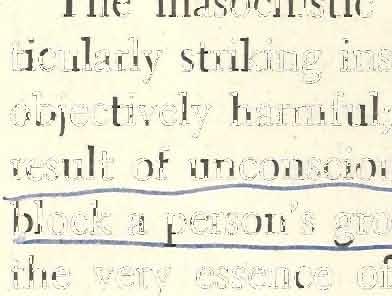 The masochistic
ticularly striking ins
objectively harmful,
result of unconsciou
block a person's gro
the very essence of